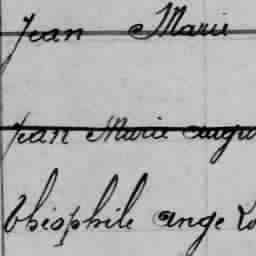 Jean Marie
Jean Marie augu
Théophile ange Lo